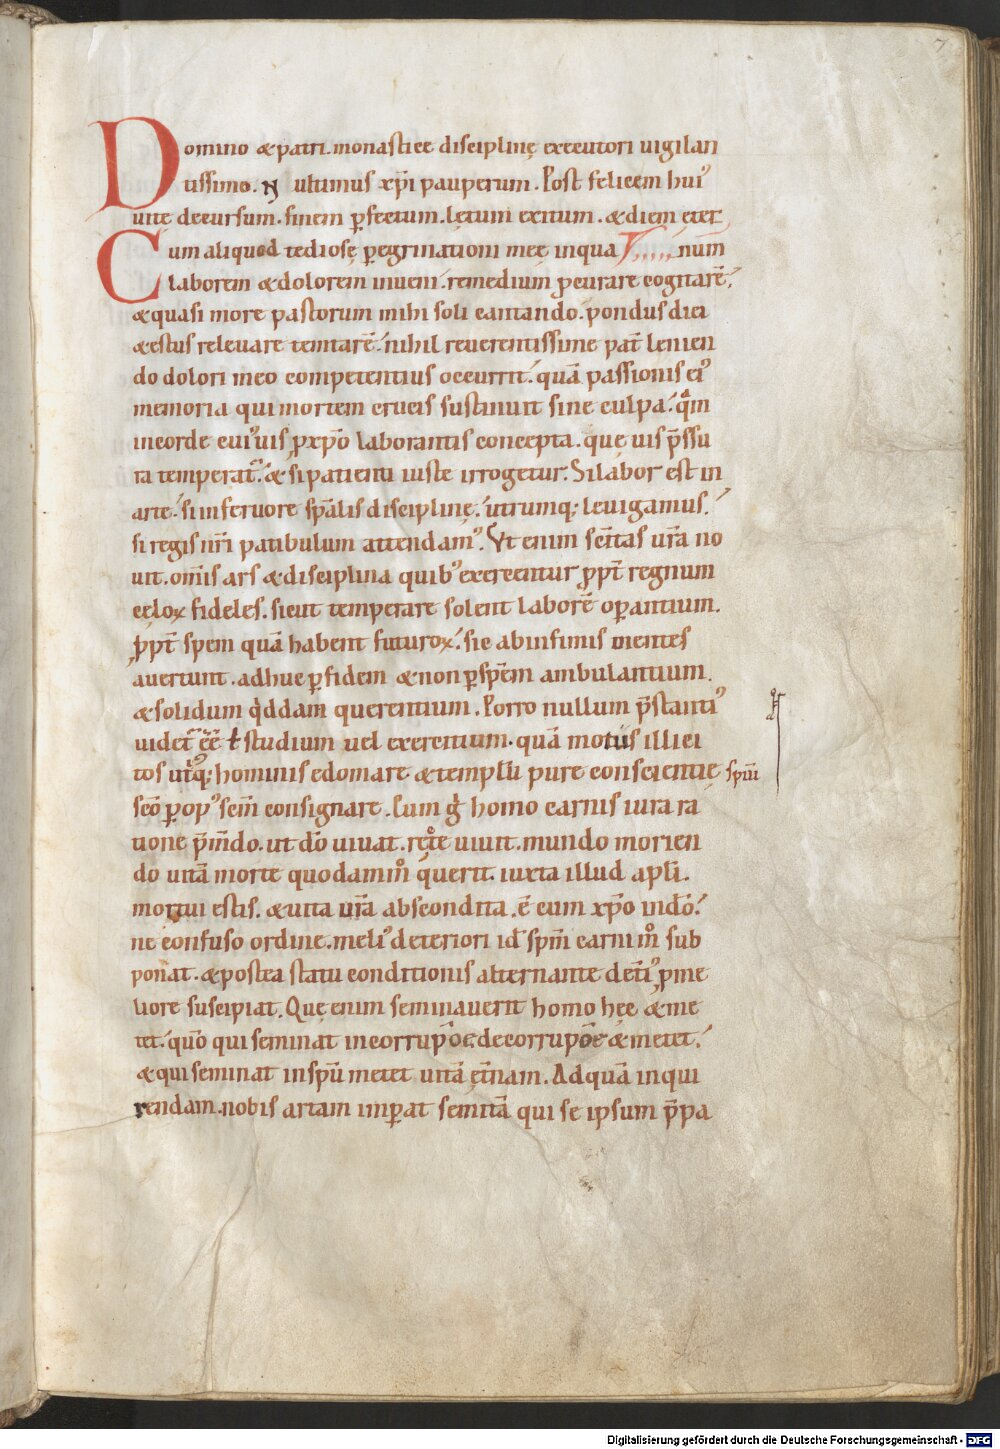 7
Domino & patri. monasticę disciplinę executori uigilan
tissimo. N ultimus xp̄i pauperum. Post felicem hui᷒
uite decursum. finem ꝑfectum. lętum exitum. & diem eter
Cum aliquod tediosę peregrinationi meę inqua num̄
laborem & dolorem inueni. remedium ꝓcurare cogitarē,
& quasi more pastorum mihi soli cantando. pondus diei
& estus releuare temtarē. nihil reuerentissime pat̄ lenien
do dolori meo competentius occurrit. quā passionis ei᷒
memoria qui mortem crucis sustinuit sine culpa. qm̄
incorde cui᷒uis ꝓxp̄o laborantis concepta. quę uis p̄ssu
ra temperat᷒. & si patienti iuste irrogetur. Si labor est in
arte. si inferuore sp̄alis disciplinę. utrumq; leuigamus.
si regis nr̄i patibulum attendam᷒. Vt enim sc̄itas ur̄a no
uit. om̄is ars & disciplina quib᷒ exercentur ꝓpt̄ regnum
cęloꝝ fideles. sicut temperare solent laborē oꝑantium.
ꝓpt̄ spem quā habent futuroꝝ. sic abinfimis mentes
auertunt. adhuc ꝑ fidem & non ꝑ spēm ambulantium.
& solidum qddam querentium. Porro nullum p̄stanti᷒
uidet᷒ eē ł studium uel exercitium. quā motus illici
tos utq; hominis edomare & templū pure conscientię sp̄ui
sc̄o ꝑ op᷒ sem̄ consignare. Cum g̊ homo carnis iura ra
tione p̄mdo. ut dō uiuat. recte uiuit. mundo morien
do uitā morte quodamm̊ querit. iuxta illud apl̄i.
mortui estis. & uita ur̄a abscondita. ē cum xp̄o indō.
ne confuso ordine. meli᷒ deteriori id̄ sp̄m carni m̊ sub
ponat. & postea statu conditionis alternante det̄i᷒ ꝓme
liore suscipiat. Quę enim seminauerit homo hęc & me
tet. quō qui seminat incorrupōe. decorrupōe & metet.
& qui seminat inspū metet uitā ęt̄nam. Ad quā inqui
rendam. nobis artam imꝑat semitā qui se ipsum p̄pa
Digitalisierung gefördert durch die Deutsche Forschungsgemeinschaft - DFG